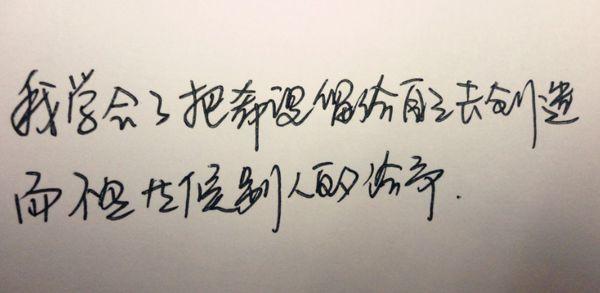 我学会了把希望留给自己去创造
而不是去侯别人的给予.